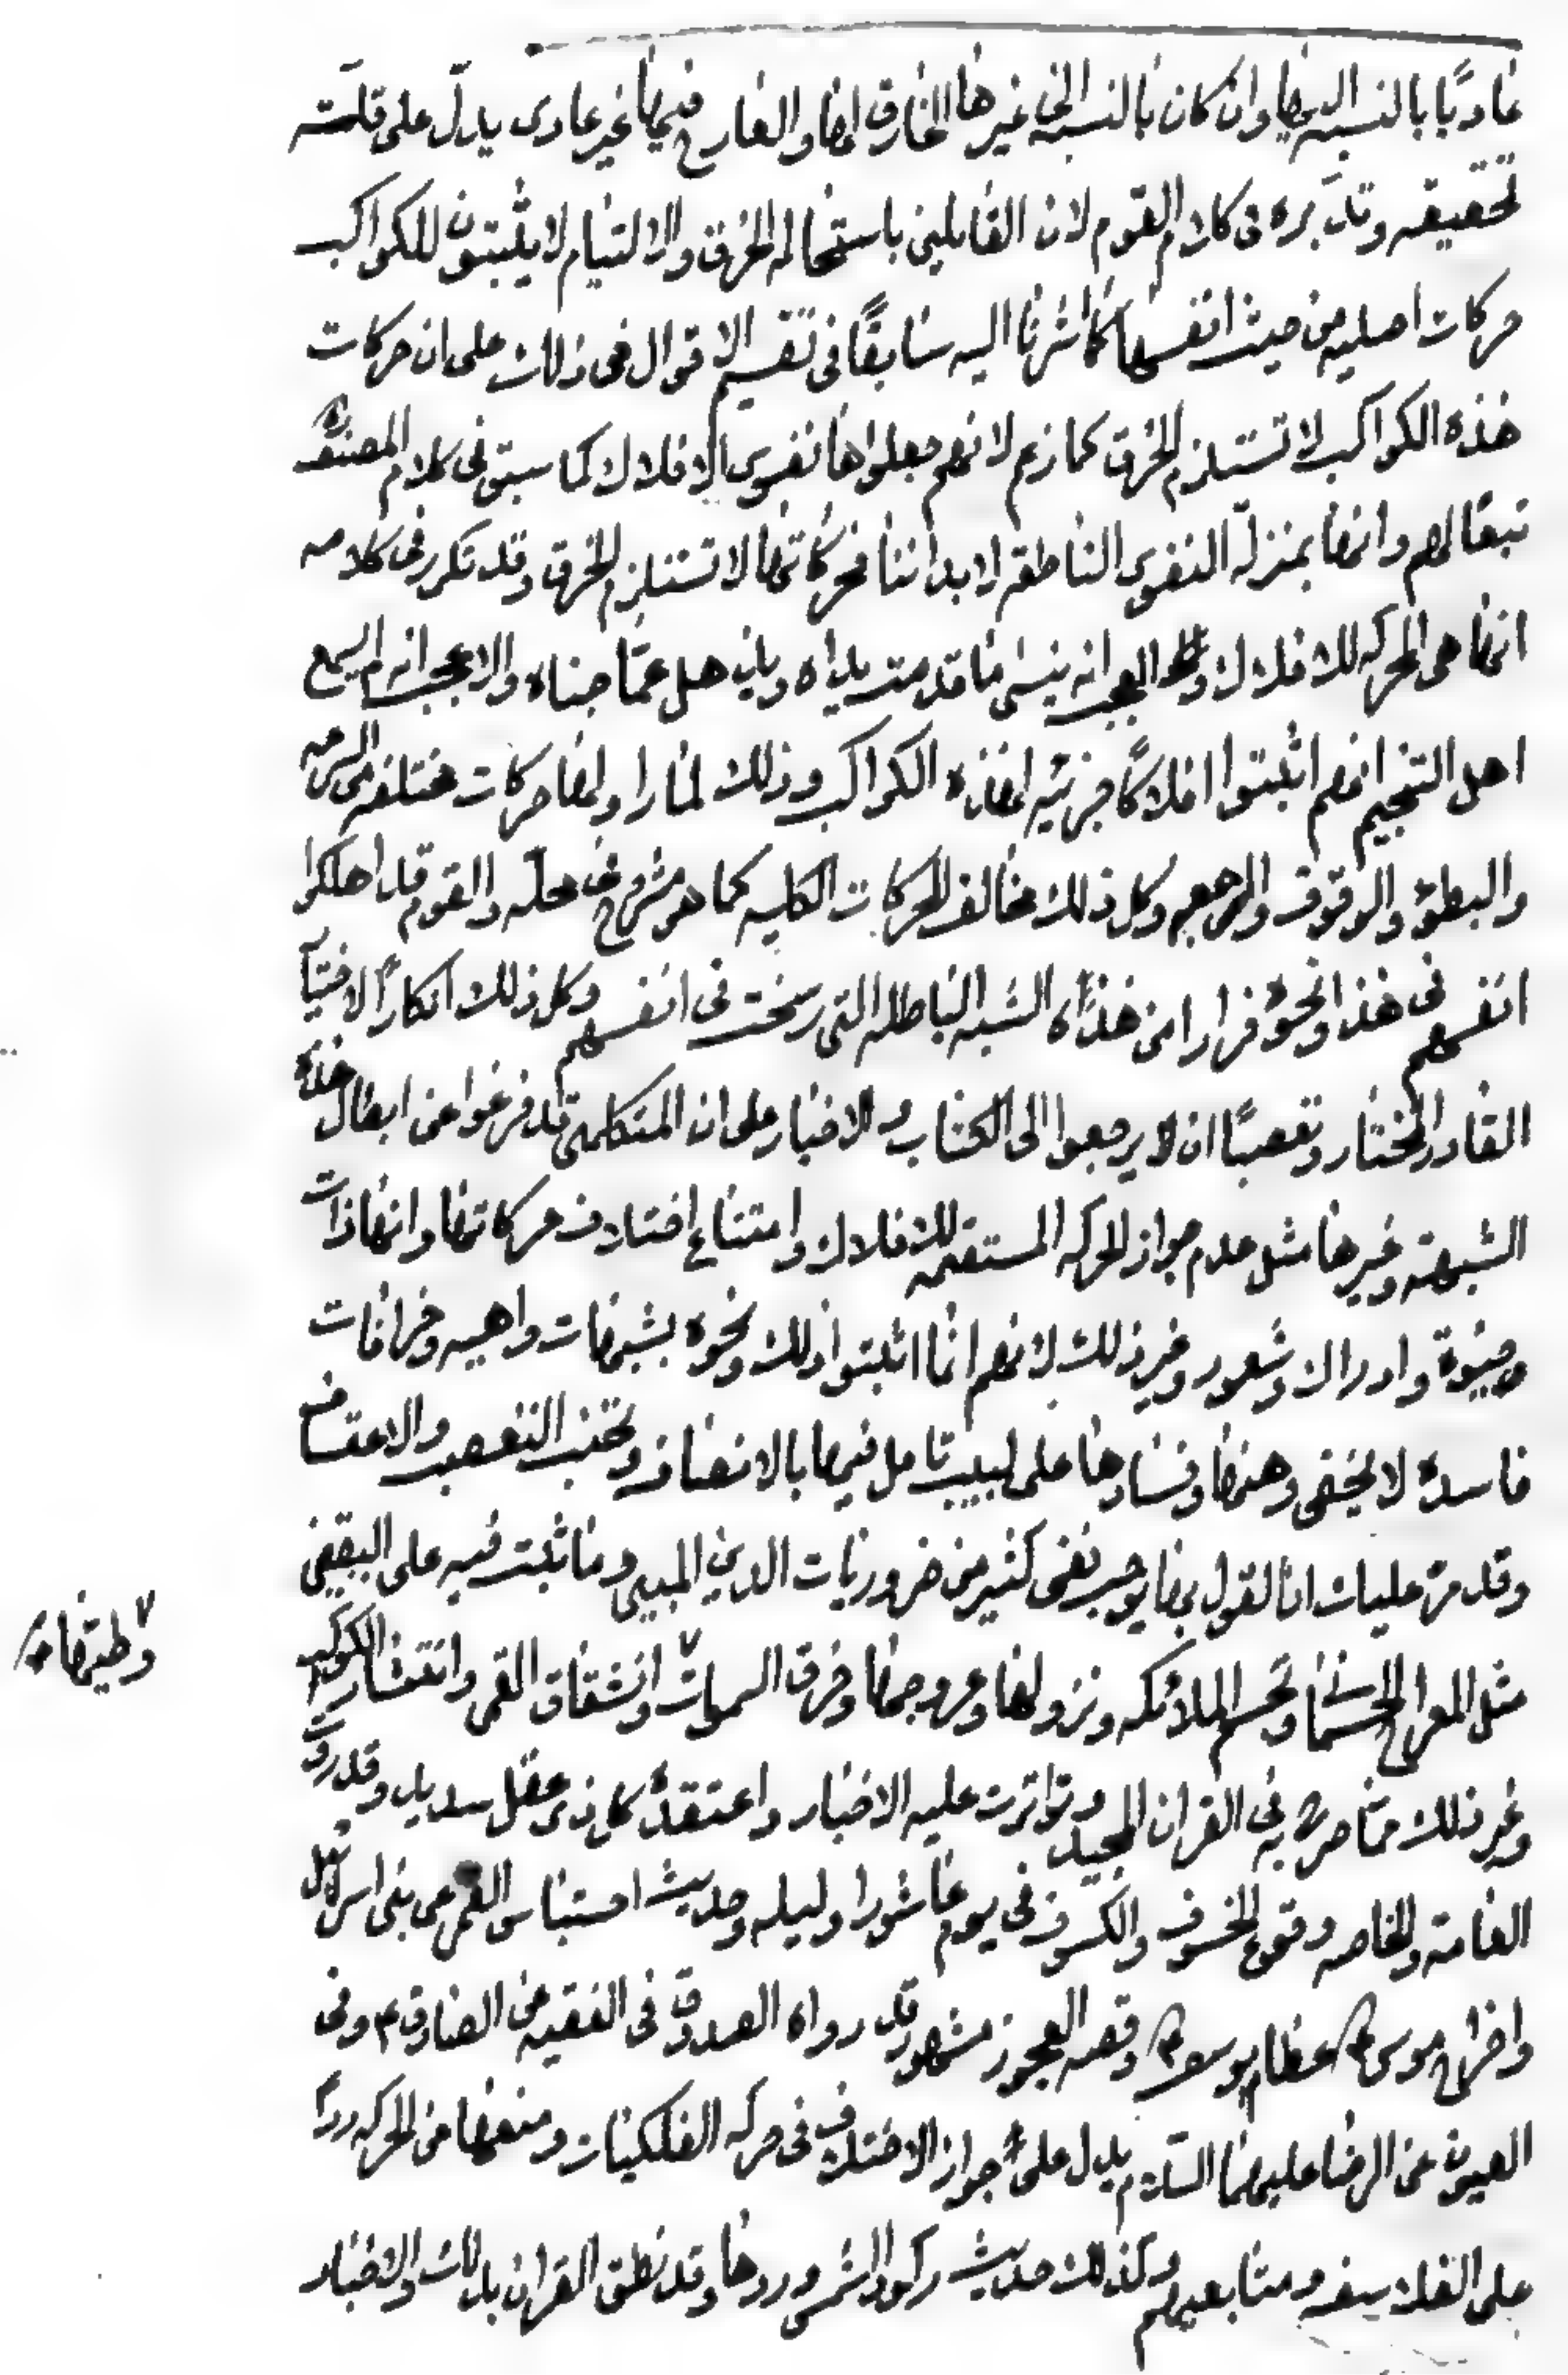 عاديًا بالنسبه اليها وان كان بالنسبه الى غيرها الخارق لها والخارج فيها غير عادى يدلّ على قلّت
تحقيقه وتدبره فى كلام القوم لان القايلين باستحاله الخرق والالتيام لا يثبتون للكواكب
حركات اصليه من حيث انفسها كما اشرنا اليه سابقًا فى تقسيم الاقوال فى ذلك على ان حركات
هذه الكواكب لا تستلزم الخرق كما زعم لانهم جعلوها نفوس الافلاك كما سبق فى كلام المصنف ره
تبعًا لهم وانها بمنزلة النفوس الناطقه لابداننا فحركاتها لا تستلزم الخرق وقد تكرر فى كلامه
انها هى المحركه للافلاك العجب انه ينسى ما قدمت يداه ويذهل عمّا جناه والاعجب انه لم يسمع
اهل التنجيم انهم اثبتوا افلاكًا جزئيه لهذه الكواكب وذلك لما راوا لها حركات مختلفه من السرعه
والبطؤ والوقوف والرجعه وكل ذلك مخالف للحركات الكليه كما هو مشروح فى محلّه والقوم قد اهلكوا
انفسهم فى هذا ونحوه فرارا من هذه الشبه الباطله التى رسخت فى انفسهم وكل ذلك انكارًا لاختيار
القادر المختار وتعصبًا ان لا يرجعوا الى الكتاب والاخبار على ان المتكلمين قد فرغوا عن ابطال هذه
الشبهة وغيرها مثل عدم جواز الحركه المستقيمه للافلاك وامتناع اختلاف حركاتها وانها ذات
وحيوة وادراك وشعور وغير ذلك لانهم انما اثبتوا ذلك ونحوه بشبهات واهيه وخرافات
فاسده لا يخفى وهنها وفسادها على لبيب تامل فيها بالانصاف وتجنب التعصب والاعتساف
وقد مرّ عليك ان القول بها يوجب نفى كثير من ضروريات الدين المبين وما ثبت فيه على اليقين
مثل المعراج الجسمانى وتجسم الملائكه ونزولها وعروجها وخرق السموات وانشقاق القمر وانتثار الكواكب
وطيها صح
وغير ذلك مما صرح به فى القران المجيد وتواترت عليه الاخبار واعتقده كل ذى عقل سديد وقد روت
العامة والخاصه وقوع الخسوف والكسوف فى يوم عاشورا وليله وحديث احتباس القمر عن بنى اسرائيل
واخراج موسى ع عظام يوسف ع وقصه العجوز مشهور قد رواه الصدوق فى الفقيه عن الصادق ع وفى
العيون عن الرضا عليهما السلام يدل على جواز الاختلاف فى حركه الفلكيات ومنعها من الحركه ردًا
على الفلاسفه ومتابعيهم وكذلك حديث ركود الشمس وردها وقد نطق القران بذلك والاخبار